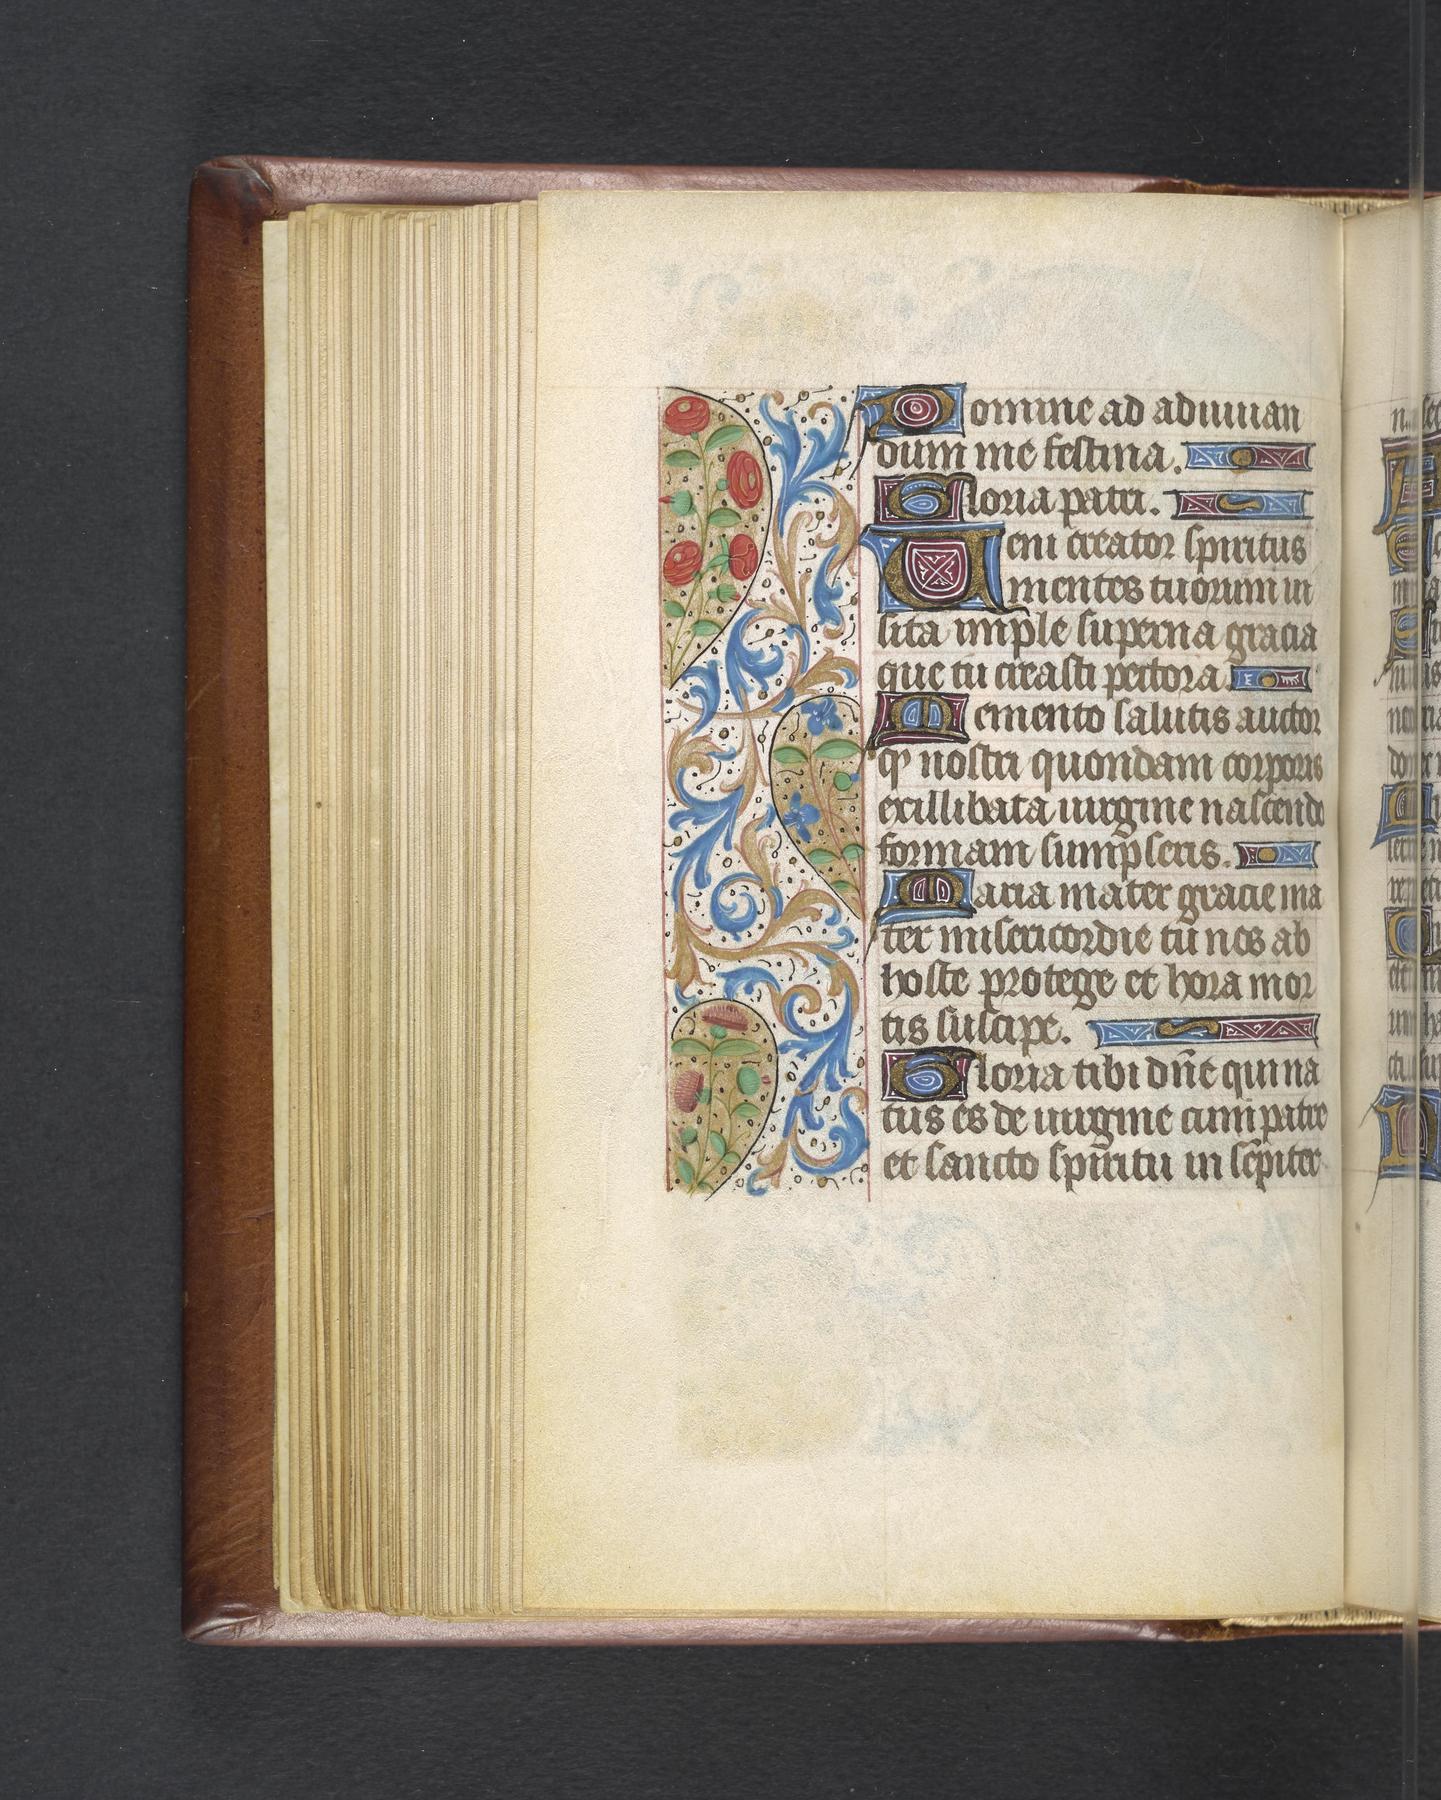 Domine ad adiuuan
dum me festina.
Gloria patri.
Ueni creator spiritus
mentes tuorum in
sita imple superna gracia
que tu creasti pectora.
Memento salutis auctor
qp nostri quondam corporis
exillibata uirgine nascendo
formam sump̄seris.
Maria mater gracie ma
ter misericordie tu nos ab
hoste protege et hora mor
tis suscipe.
Gloria tibi dn̄e qui na
tus es de uirgine cum patre
et sancto spiritu in sēpiter